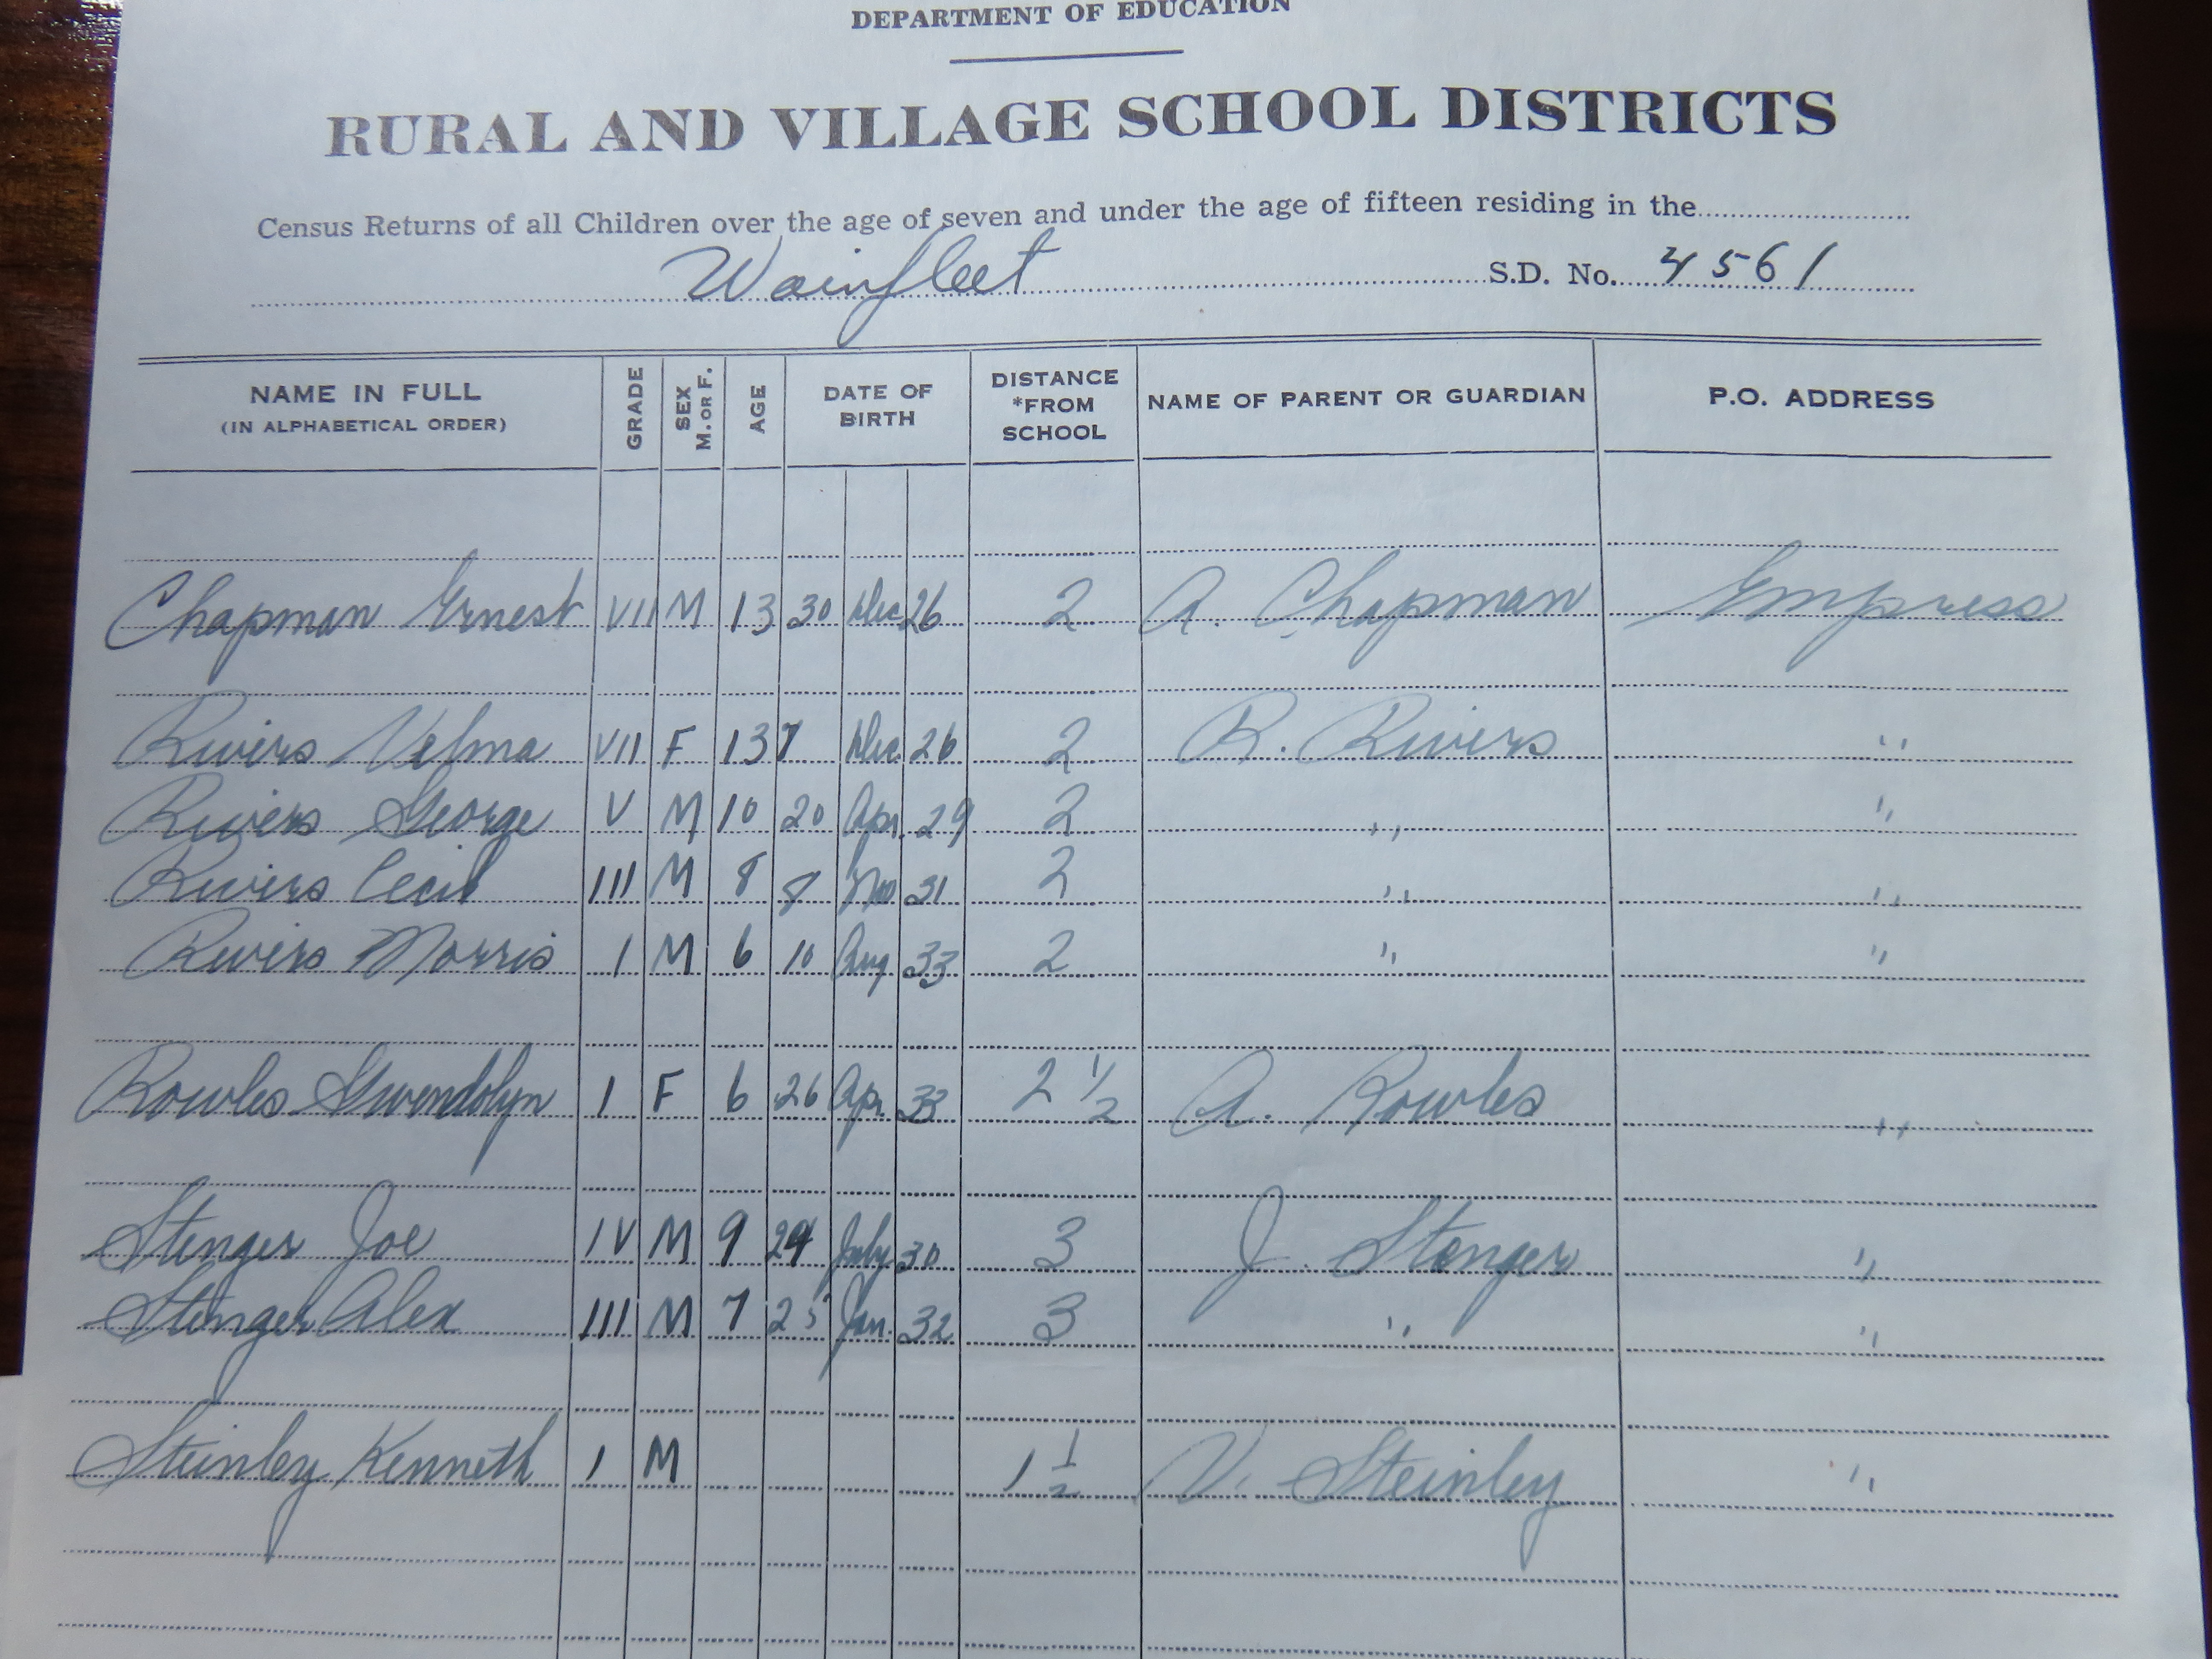 DEPARTMENT OF EDUCATION
RURAL AND VILLAGE SCHOOL DISTRICTS
Census Returns of all Children over the age of seven and under the age of fifteen residing in the
Wainfleet S.D. No. 4561
NAME IN FULL (IN ALPHABETICAL ORDER) GRADE SEX M. OR F. AGE DATE OF BIRTH DISTANCE *FROM SCHOOL NAME OF PARENT OR GUARDIAN P.O. ADDRESS
Chapman Ernest VII M 13 30 Dec 26 2 A. Chapman Empress
Rivers Velma VII F 13 7 Dec. 26 2 R. Rivers "
Rivers George V M 10 20 Apr. 29 2 " "
Rivers Cecil III M 8 8 31 2 " "
Rivers Morris I M 6 10 Aug 33 2 " "
Rowles Gwendolyn I F 6 26 Apr. 33 2 1/2 A. Rowles "
Stenger Joe IV M 9 July 30 3 J. Stenger "
Stenger Alex III M 7 25 Jan. 32 3 " "
Steinley Kenneth I M 1 1/2 V. Steinley "